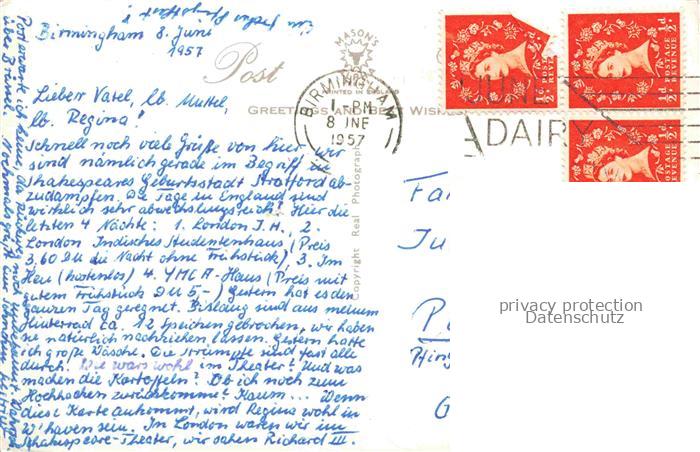 Birmingham 8. Juni
1957
MASON'S
PRINTED IN ENGLAND
Post
GREETINGS AND BEST WISHES
BIRMINGHAM
1-PM
8 JNE
1957
JUNE
DAIRY
½d POSTAGE REVENUE ½d
½d POSTAGE REVENUE ½d
POSTAGE REVENUE ½d
Lieber Vatel, lb. Muttel,
lb. Regina!
Schnell noch viele Grüße von hier, wir
sind nämlich gerade im Begriff in
Shakespeares Geburtsstadt Stratford ab-
zudampfen. Die Tage in England sind
wirklich sehr abwechslungsreich! Hier die
letzten 4 Nächte: 1. London J.H. 2.
London Indisches Studentenhaus (Preis
3,60 DM die Nacht ohne Frühstück), 3. Im
Heu (kostenlos) 4. YMCA-Haus (Preis mit
gutem Frühstück DM 5,-) Gestern hat es den
ganzen Tag geregnet. Bislang sind aus meinem
Hinterrad ca. 12 Speichen gebrochen, wir haben
sie natürlich nachziehen lassen. Gestern hatte
ich große Wäsche. Die Strümpfe sind fast alle
durch! Wie wars wohl im Theater? Und was
machen die Kartoffeln? Ob ich noch zum
Hochhacken zurückkomme? Kaum... Wenn
diese Karte ankommt, wird Regina wohl in
W'haven sein. In London waren wir im
Shakespeare-Theater, wir sahen Richard III.
Copyright Real Photograph
über Brüssel. Nochmals
Fa
Ju
P
Pfing
G
privacy protection
Datenschutz